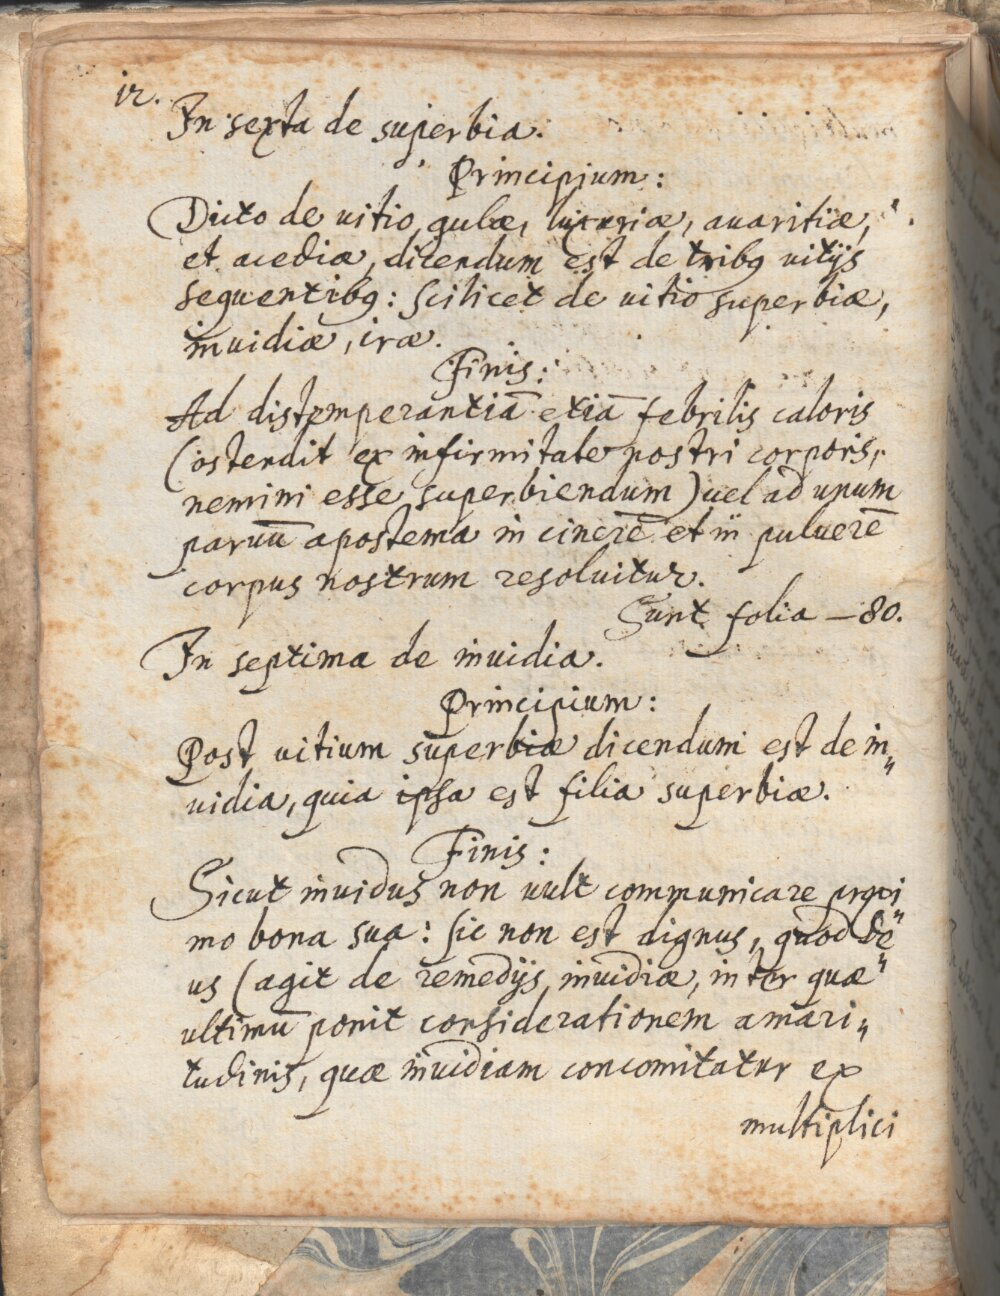 12.
In sexta de superbia.
Principium:
Dicto de uitio gulæ, luxuriæ, auaritiæ,
et acediæ, dicendum est de tribꝫ uitijs
sequentibꝫ: scilicet de uitio superbiæ,
inuidiæ, iræ.
Finis:
Ad distemperantiā etiā febrilis caloris
(ostendit ex infirmitate nostri corporis,
nemini esse superbiendum) uel ad unum
paruū apostema in cinerē et iī puluerē
corpus nostrum resoluitur.
Sunt folia — 80.
In septima de inuidia.
Principium:
Post uitium superbiæ dicendum est de in„
uidia, quia ipsa est filia superbiæ.
Finis:
Sicut inuidus non uult communicare proxi„
mo bona sua: sic non est dignus, quod De„
us (agit de remedijs inuidiæ, inter quæ
ultimū ponit considerationem amari„
tudinis, quæ inuidiam concomitatur ex
multiplici